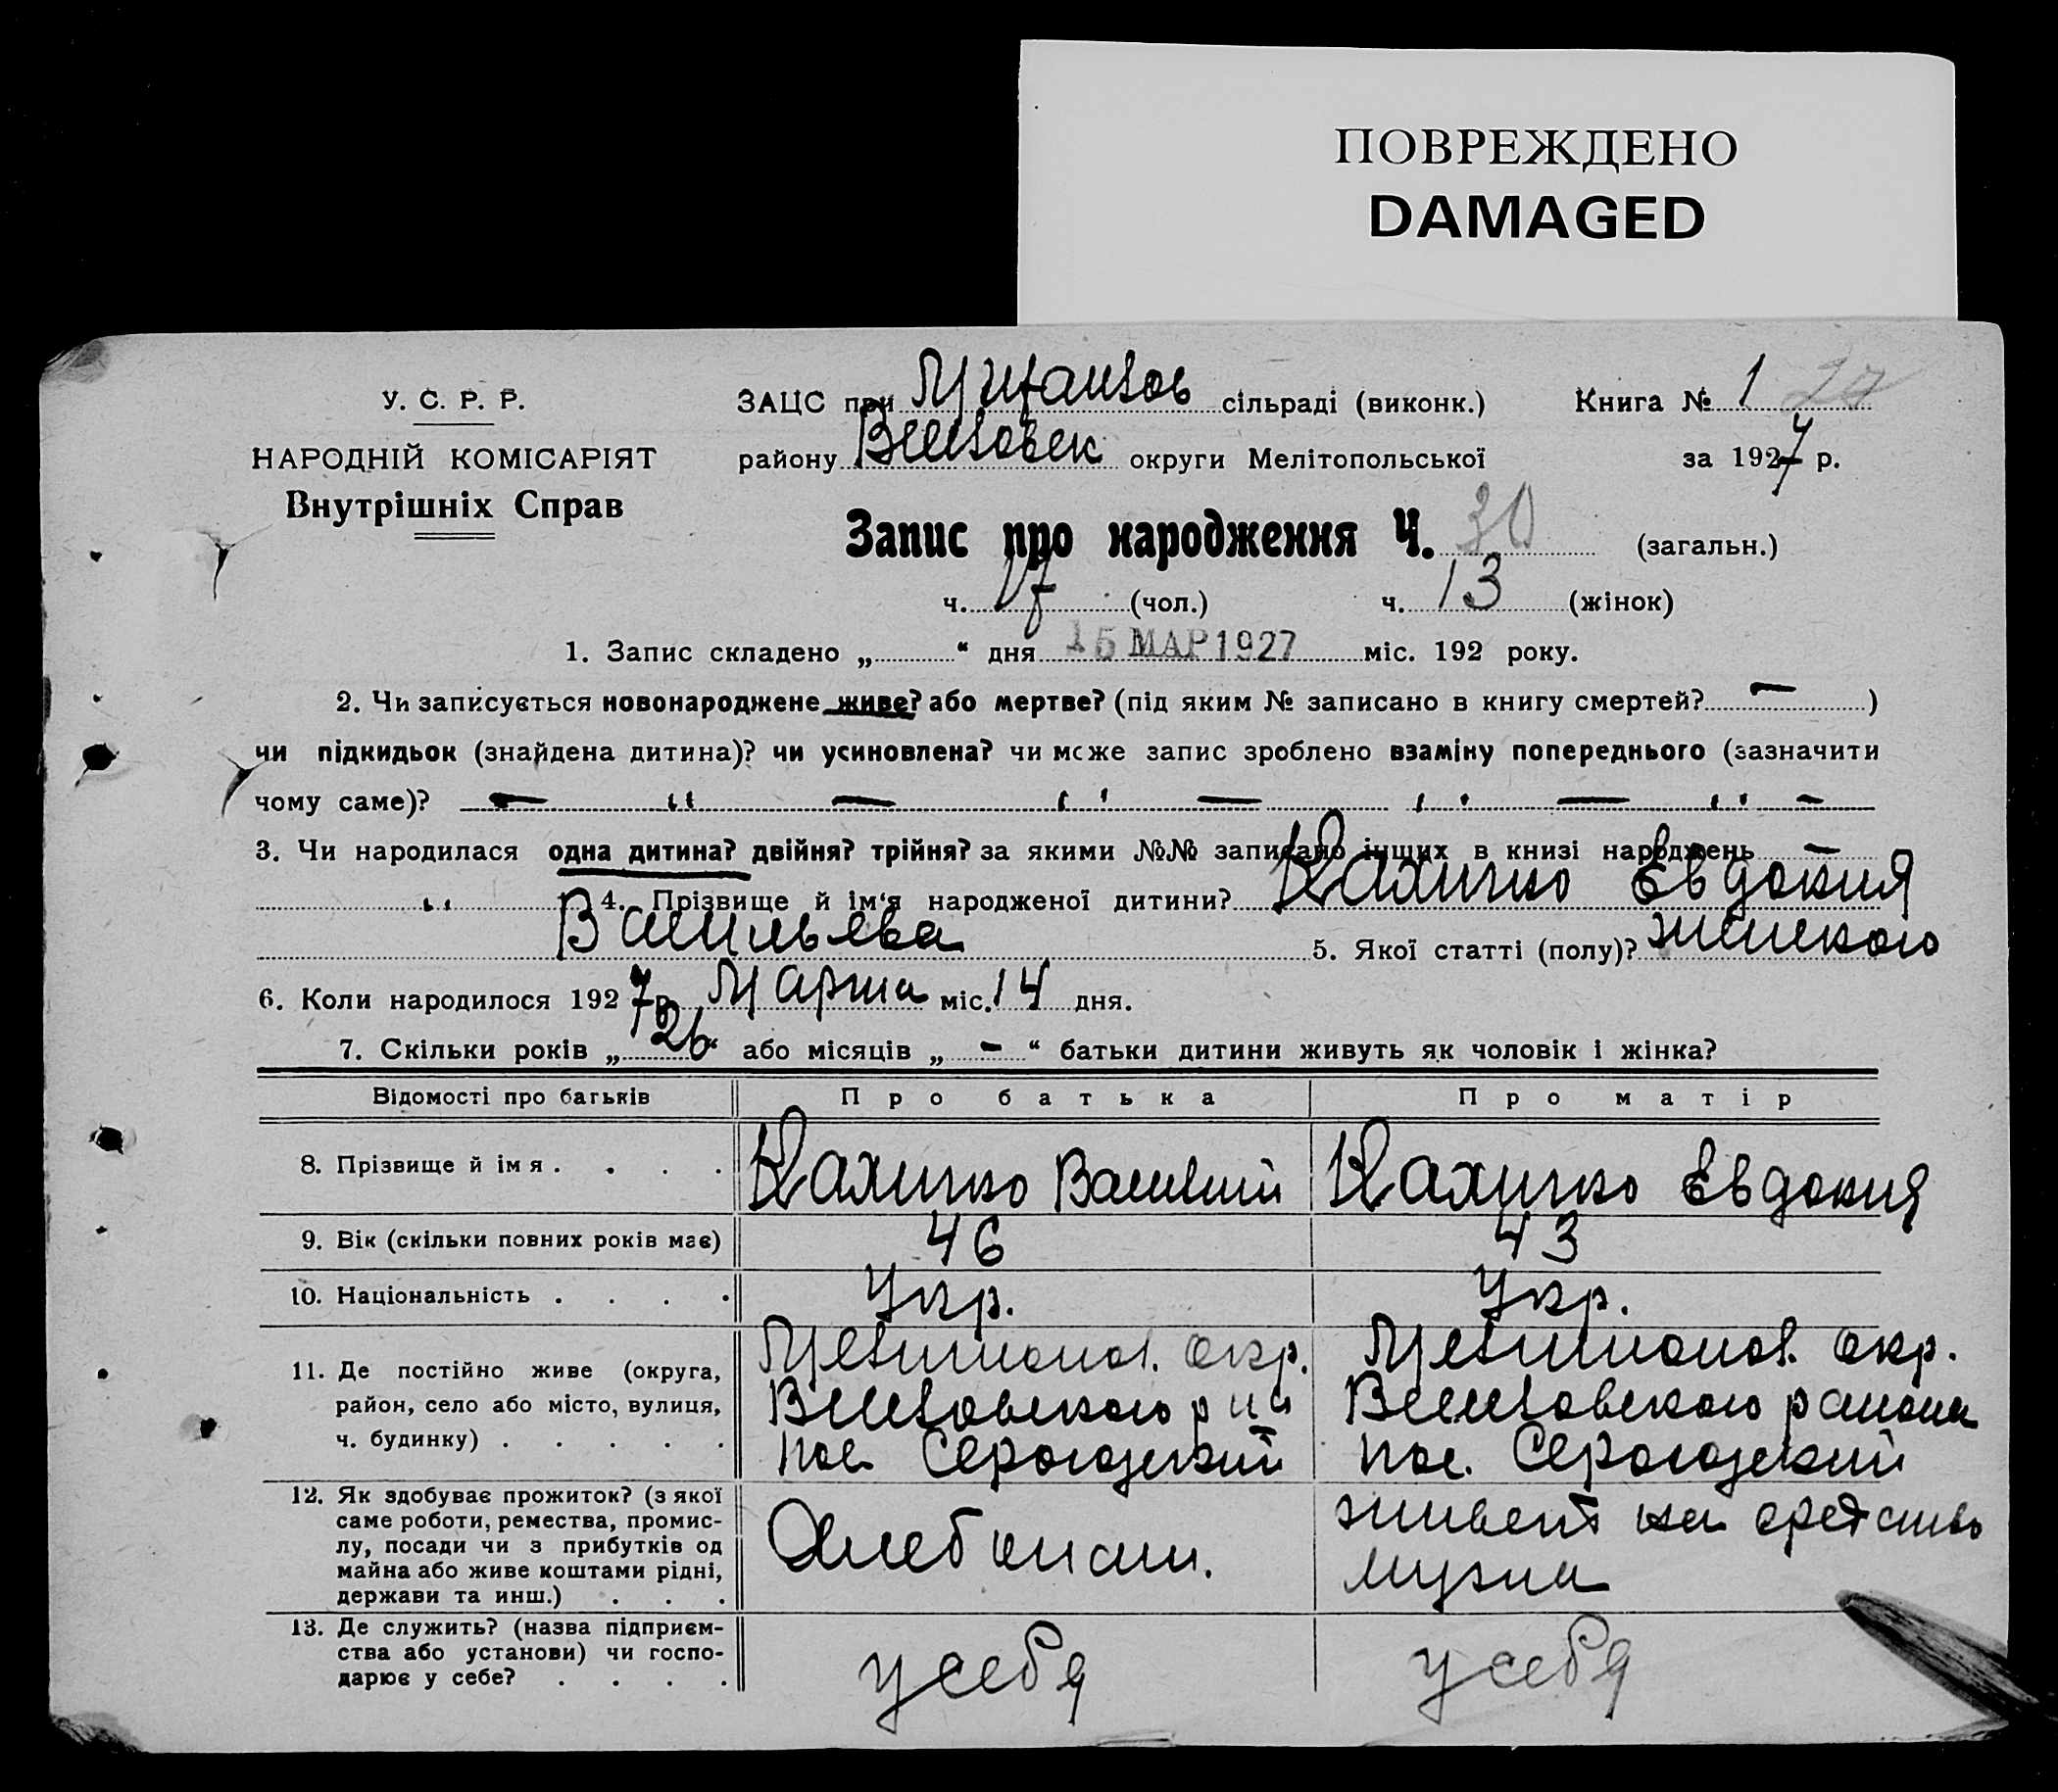 ПОВРЕЖДЕНО
DAMAGED
У. С. Р. Р.
НАРОДНІЙ КОМІСАРІЯТ
Внутрішніх Справ
ЗАЦС при сільраді (виконк.)
Книга № 1 27
району округи Мелітопольської
за 1927 р.
Запис про народження Ч. 30 (загальн.)
ч. 17 (чол.) ч. 13 (жінок)
1. Запис складено „ “ дня 15 МАР 1927 міс. 192 року.
2. Чи записується новонароджене живе? або мертве? (під яким № записано в книгу смертей? — )
чи підкидьок (знайдена дитина)? чи усиновлена? чи може запис зроблено взаміну попереднього (зазначити
чому саме)? — " — " — " — " —
3. Чи народилася одна дитина? двійня? трійня? за якими №№ записано інших в книзі народжень —
" 4. Прізвище й ім'я народженої дитини? Кахичко Евдокия
Васильева 5. Якої статті (полу)? женского
6. Коли народилося 1927 р. Марта міс. 14 дня.
7. Скільки років „ 26 або місяців „ — “ батьки дитини живуть як чоловік і жінка?
Відомості про батьків Про батька Про матір
8. Прізвище й імя . . . . Кахичко Василий Кахичко Евдокия
9. Вік (скільки повних років має) 46 43
10. Національність . . . . Укр. Укр.
11. Де постійно живе (округа, Мелитопол. окр. Мелитопол. окр.
район, село або місто, вулиця, Веселовского р на Веселовского района
ч. будинку) . . . . . пос. Серогозский пос. Серогозский
12. Як здобуває прожиток? (з якої
саме роботи, ремества, промис-
лу, посади чи з прибутків од
майна або живе коштами рідні,
держави та инш.) . . .
Хлебопаш.
живет на средство
мужа
13. Де служить? (назва підприєм-
ства або установи) чи госпо-
дарює у себе? . . . .
у себя у себя